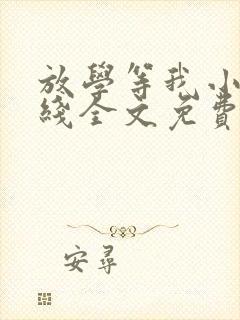 放學等我小
綫全文免費
安尋